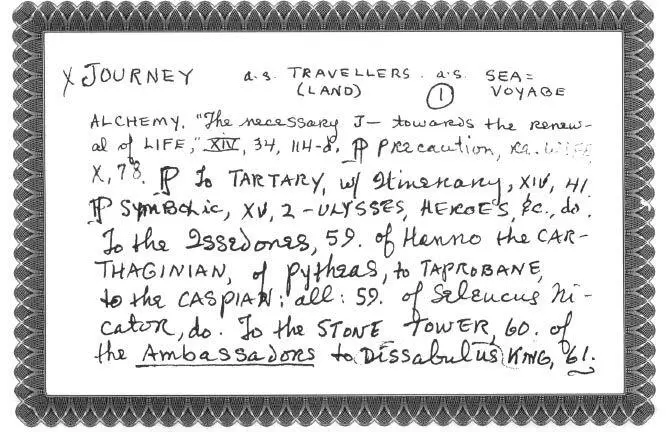 X JOURNEY a.s. TRAVELLERS. a.s. SEA=
(LAND) ① VOYAGE
ALCHEMY. "The necessary J— towards the renew-
al of LIFE," XIV, 34, 114-d. ⁋ Precaution, re. WIFE
X, 78. ⁋ To TARTARY, w/ Itinerary, XIV, 41
⁋ SYMBOLIC, XV, 2 - ULYSSES, HEROES, &c., do.
To the Issedones, 59. of Hanno the CAR-
THAGINIAN, of Pytheas, to TAPROBANE,
to the CASPIAN; all: 59. of Seleucus Ni-
cator, do. To the STONE TOWER, 60. of
the Ambassadors to Dissabulus KING, 61.